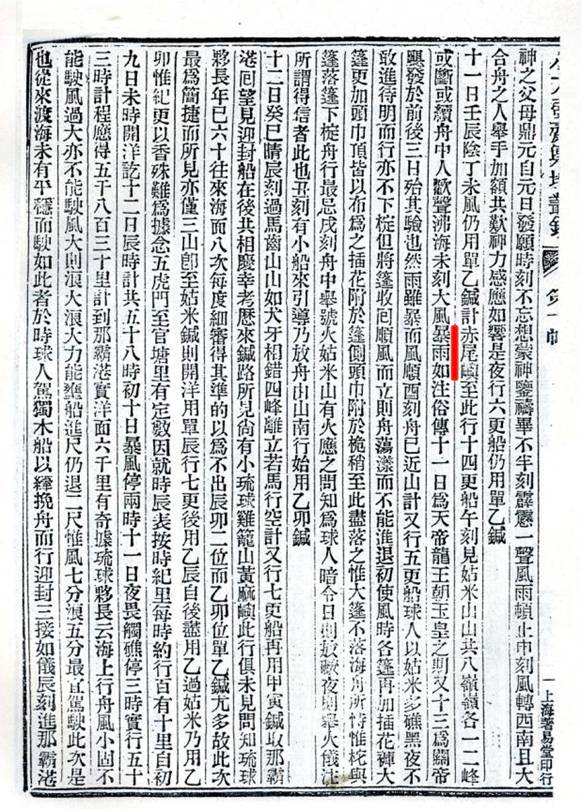 小方壺齋輿地叢鈔 第十帙
上海著易堂印行
神之父母鼎元自元日發願時刻不忘想蒙神鑒禱畢不半刻霹靂一聲風雨頓止申刻風轉西南且大
合舟之人舉手加額共歎神力感應如響是夜行六更船仍用單乙鍼
十一日壬辰陰丁未風仍用單乙鍼計赤尾嶼至此行十四更船午刻見姑米山山共八嶺嶺各一二峰
或斷或續舟中人歡聲沸海未刻大風暴雨如注俗傳十一日爲天帝龍王朝玉皇之期又十三爲關帝
颶發於前後三日殆其驗也然雨雖暴而風順酉刻舟已近山計又行五更船球人以姑米多礁黑夜不
敢進待明而行亦不下椗但將篷收回順風而立則舟蕩漾而不能進退初使風時各篷再加插花褲大
篷更加頭巾頂皆以布爲之插花附於篷側頭巾附於桅梢至此盡落之惟大篷不落海舟所恃惟柁與
篷落篷下椗舟行最忌戌刻舟中舉號火姑米山有火應之問知爲球人暗令日則放礮夜則舉火儀注
所謂得信者此也丑刻有小船來引導乃放舟由山南行始用乙卯鍼
十二日癸巳晴辰刻過馬齒山山如犬牙相錯四峰離立若馬行空計又行七更船再用甲寅鍼取那霸
港回望見迎封船在後共相慶幸老歷來鍼路所見尚有小琉球雞籠山黃麻嶼此行俱未見問知琉球
夥長年已六十往來海面八次每度細審得其準的以爲不出辰卯二位而乙卯位單乙鍼尤多故此次
最爲簡捷而所見亦僅三山即至姑米鍼則開洋用單辰行七更後用乙辰自後盡用乙過姑米乃用乙
卯惟紀更以香殊難爲據念五虎門至官塘里有定數因就時辰表按時紀里每時約行百有十里自初
九日未時開洋訖十二日辰時計共五十八時初十日暴風停兩時十一日夜畏觸礁停三時實行五十
三時計程應得五千八百三十里計到那霸港實洋面六千里有奇據琉球夥長云海上行舟風小固不
能駛風過大亦不能駛風大則浪大浪大力能壅船進尺仍退二尺惟風七分浪五分最宜駕駛此次是
也從來渡海未有平穩而駛如此者於時球人駕獨木船以縴挽舟而行迎封三接如儀辰刻進那霸港